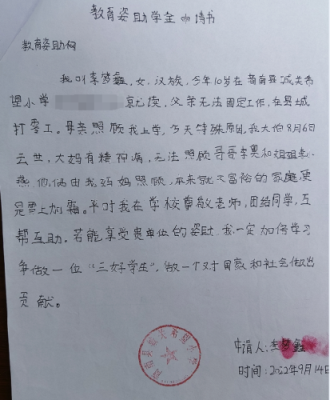 教育姿助学金申请书
教育资助局
我叫李梦鑫,女,汉族,今年10岁在 县城关希
望小学 就读,父亲无法固定工作,在县城
打零工。母亲照顾我上学,今天特殊原因,我大伯8月6日
去世,大妈有精神病,无法照顾哥哥李 和姐姐李
他俩由我爸妈照顾,本来就不富裕的家庭更
是雪上加霜。平时我在学校尊敬老师,团结同学,互
帮互助。若能享受贵单位的资助,我一定加倍学习
争做一位“三好学生”,做一个对国家和社会做出
贡献。
申请人:李梦鑫
时间:2022年9月14日